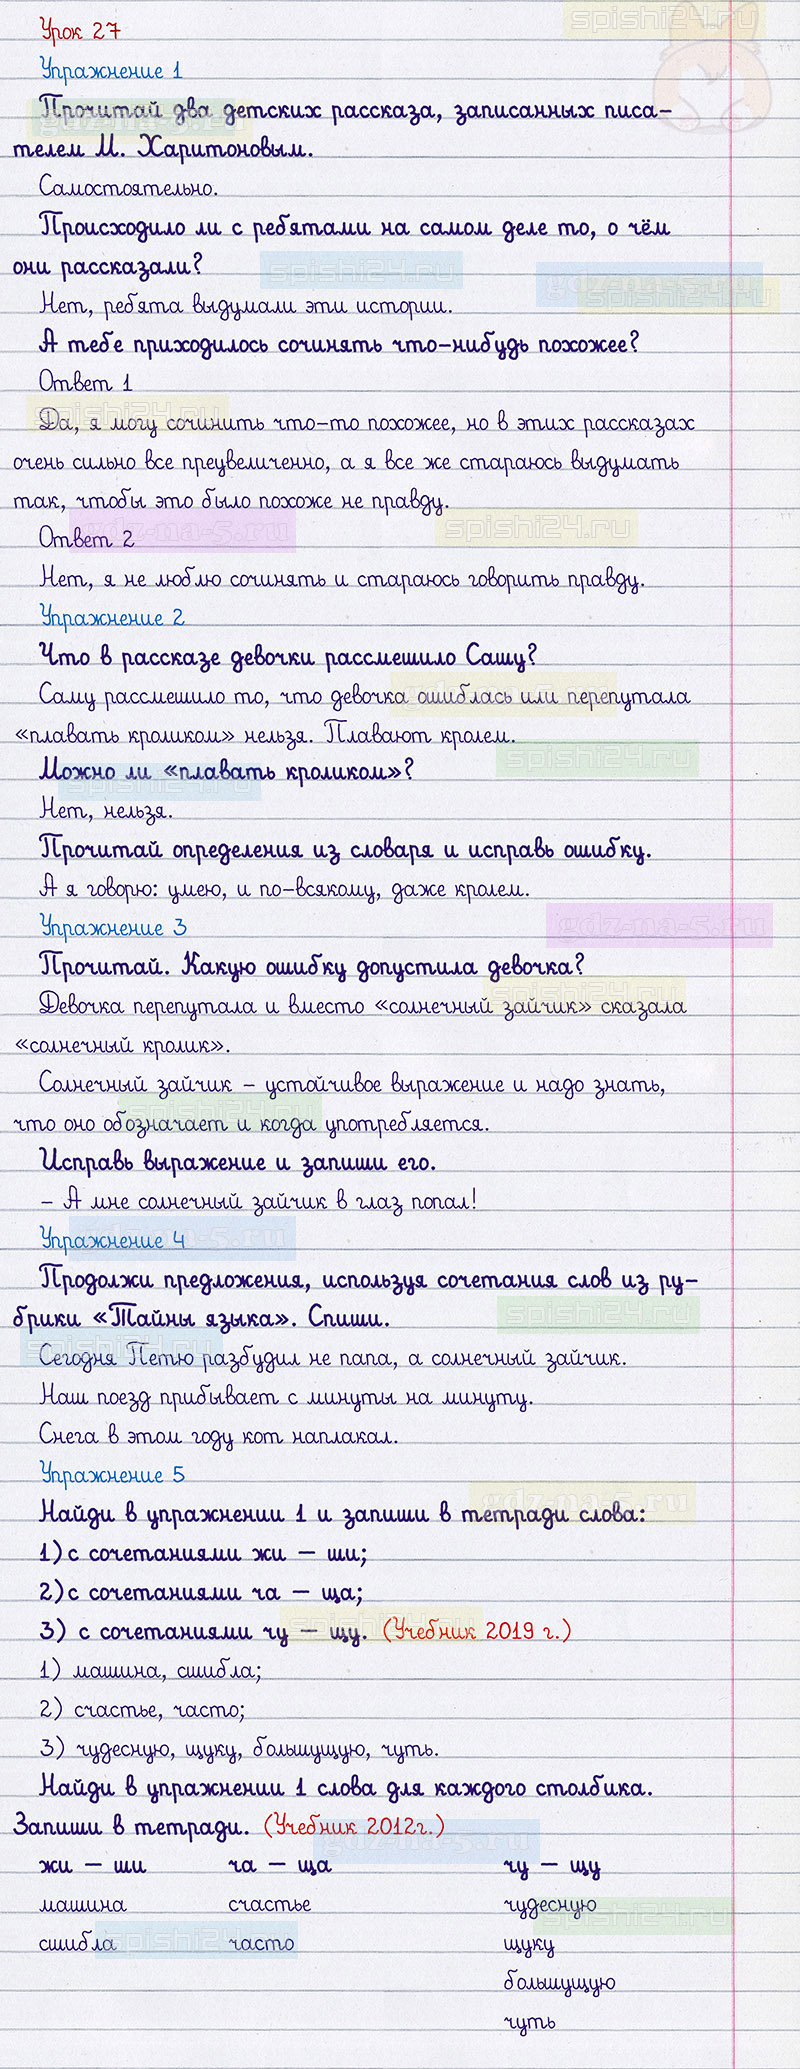 Урок 27
Упражнение 1
Прочитай два детских рассказа, записанных писа-
телем М. Харитоновым.
Самостоятельно.
Происходило ли с ребятами на самом деле то, о чём
они рассказали?
Нет, ребята выдумали эти истории.
А тебе приходилось сочинять что-нибудь похожее?
Ответ 1
Да, я могу сочинить что-то похожее, но в этих рассказах
очень сильно все преувеличенно, а я все же стараюсь выдумать
так, чтобы это было похоже не правду.
Ответ 2
Нет, я не люблю сочинять и стараюсь говорить правду.
Упражнение 2
Что в рассказе девочки рассмешило Сашу?
Саму рассмешило то, что девочка ошиблась или перепутала
«плавать кроликом» нельзя. Плавают кролем.
Можно ли «плавать кроликом»?
Нет, нельзя.
Прочитай определения из словаря и исправь ошибку.
А я говорю: умею, и по-всякому, даже кролем.
Упражнение 3
Прочитай. Какую ошибку допустила девочка?
Девочка перепутала и вместо «солнечный зайчик» сказала
«солнечный кролик».
Солнечный зайчик – устойчивое выражение и надо знать,
что оно обозначает и когда употребляется.
Исправь выражение и запиши его.
– А мне солнечный зайчик в глаз попал!
Упражнение 4
Продолжи предложения, используя сочетания слов из ру-
брики «Тайны языка». Спиши.
Сегодня Петю разбудил не папа, а солнечный зайчик.
Наш поезд прибывает с минуты на минуту.
Снега в этом году кот наплакал.
Упражнение 5
Найди в упражнении 1 и запиши в тетради слова:
1) с сочетаниями жи – ши;
2) с сочетаниями ча – ща;
3) с сочетаниями чу – щу. (Учебник 2019 г.)
1) машина, сшибла;
2) счастье, часто;
3) чудесную, щуку, большущую, чуть.
Найди в упражнении 1 слова для каждого столбика.
Запиши в тетради. (Учебник 2012г.)
жи – ши ча – ща чу – щу
машина счастье чудесную
сшибла часто щуку
большущую
чуть